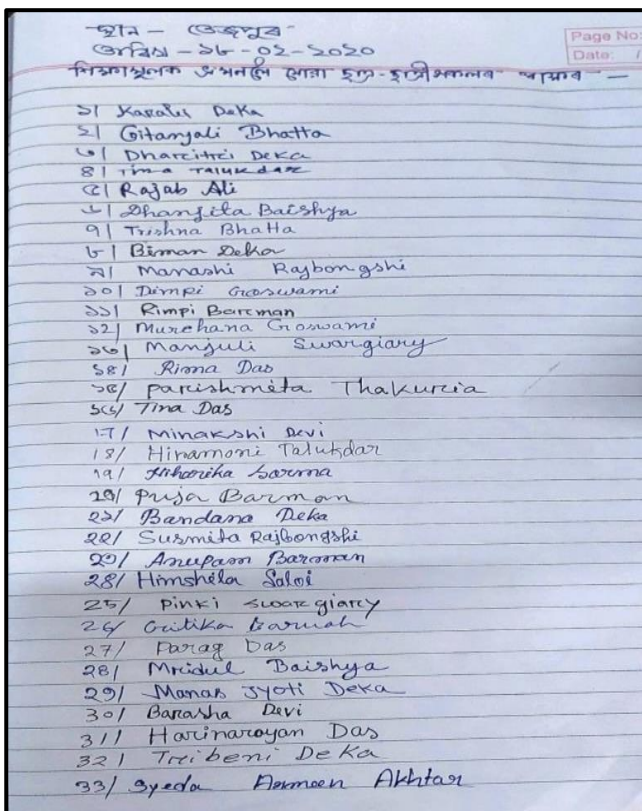 স্থান - তেজপুৰ
তাৰিখ - ১৮-০২-২০২০
Page No:
Date: /
শিক্ষামূলক ভ্ৰমণলৈ যোৱা ছাত্ৰ-ছাত্ৰীসকলৰ স্বাক্ষৰ —
১| Karabi Deka
২| Gitanjali Bhatta
৩| Dharcitrci Deka
৪| Tina Talukdar
৫| Rajab Ali
৬| Dhanjita Baishya
৭| Trishna Bhatta
৮| Biman Deka
৯| Manashi Rajbongshi
১০| Dimpi Goswami
১১| Rimpi Barman
১২| Murchana Goswami
১৩| Manjuli Swargiary
১৪/ Rima Das
১৫/ Parishmita Thakuria
১৬/ Tina Das
17/ Minakshi Devi
18/ Hiramoni Talukdar
19/ Niharika Sarma
20/ Puja Barman
২১/ Bandana Deka
২২/ Susmita Rajbongshi
২৩/ Anupam Barman
২৪/ Himshila Saloi
25/ Pinki Swargiary
26/ Gitika Baruah
27/ Parag Das
28/ Mridul Baishya
29/ Manas Jyoti Deka
30/ Barasha Devi
31/ Harinarayan Das
32/ Tribeni Deka
33/ Syeda Akhtar